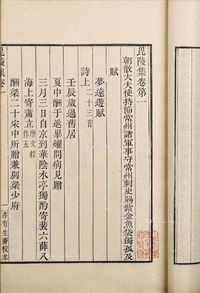 毘陵集卷第一
朝散大夫使持節常州諸軍事守常州刺史賜紫金魚袋獨孤及
賦
夢遠遊賦
詩上二十三首
壬辰歲過舊居
夏中酬于逖畢耀問病見贈
三月三日自京到華陰水亭獨酌寄裴六薛八
海上寄蕭立
酬梁二十宋中所贈兼別梁少府
毘陵集卷一
一
亦有生齋校本